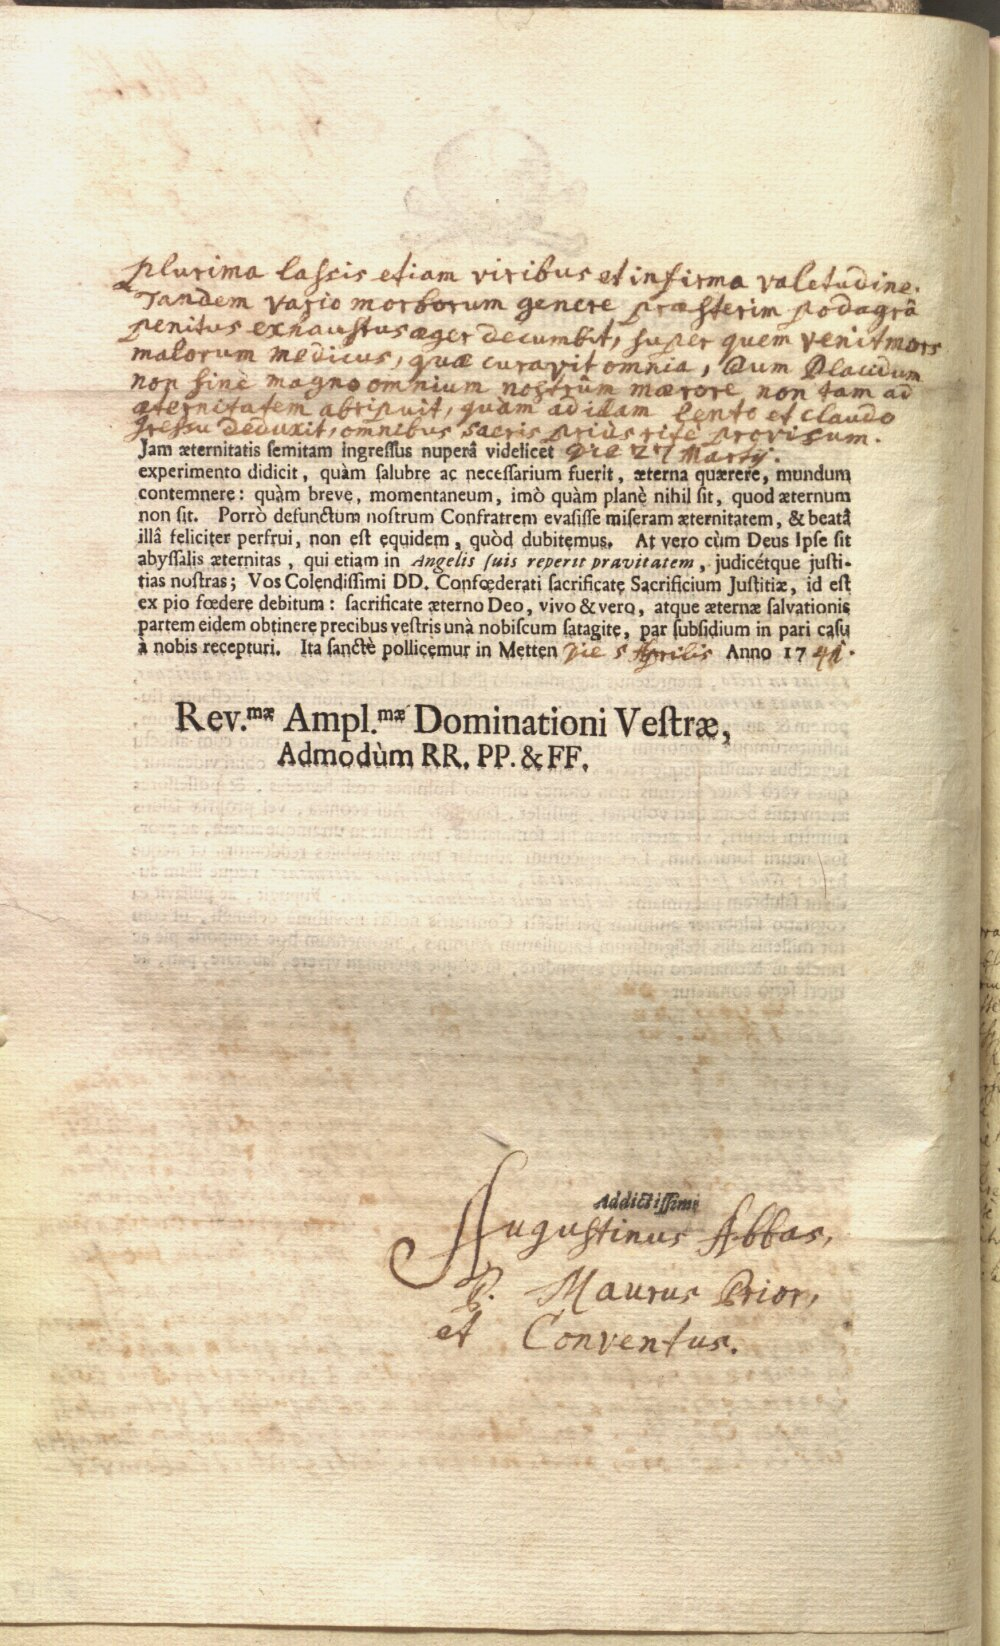 plurima lassis etiam viribus et infirma valetudine.
Tandem vario morborum genere præsterim podagrâ
penitus exhaustus æger decumbit, super quem venit mors
malorum medicus, quæ curavit omnia, dum Placidum
non sine magno omnium nostrûm mærore non tam ad
æternitatem abripuit, quàm ad illam lento et claudo
gressu deduxit, omnibus sacris priùs ritè provisum.
Jam æternitatis ſemitam ingreſſus nuperâ videlicet die 27 Martij.
experimento didicit, quàm ſalubre ac neceſſarium fuerit, æterna quærere, mundum
contemnere: quàm breve, momentaneum, imò quàm planè nihil ſit, quod æternum
non ſit. Porrò defunctum noſtrum Confratrem evaſiſſe miſeram æternitatem, & beatâ
illâ feliciter perfrui, non eſt equidem, quòd dubitemus. At vero cùm Deus Ipſe ſit
abyſſalis æternitas, qui etiam in Angelis ſuis reperit pravitatem, judicétque juſti-
tias noſtras; Vos Colendiſſimi DD. Confœderati ſacrificate Sacrificium Juſtitiæ, id eſt
ex pio fœdere debitum: ſacrificate æterno Deo, vivo & vero, atque æternæ ſalvationis
partem eidem obtinere precibus veſtris unà nobiſcum ſatagite, par ſubſidium in pari caſu
à nobis recepturi. Ita ſanctè pollicemur in Metten die 5 Aprilis Anno 1741.
Rev.mæ Ampl.mæ Dominationi Veſtræ,
Admodùm RR. PP. & FF.
Addictiſſimi
Augustinus Abbas,
P. Maurus Prior,
et Conventus.